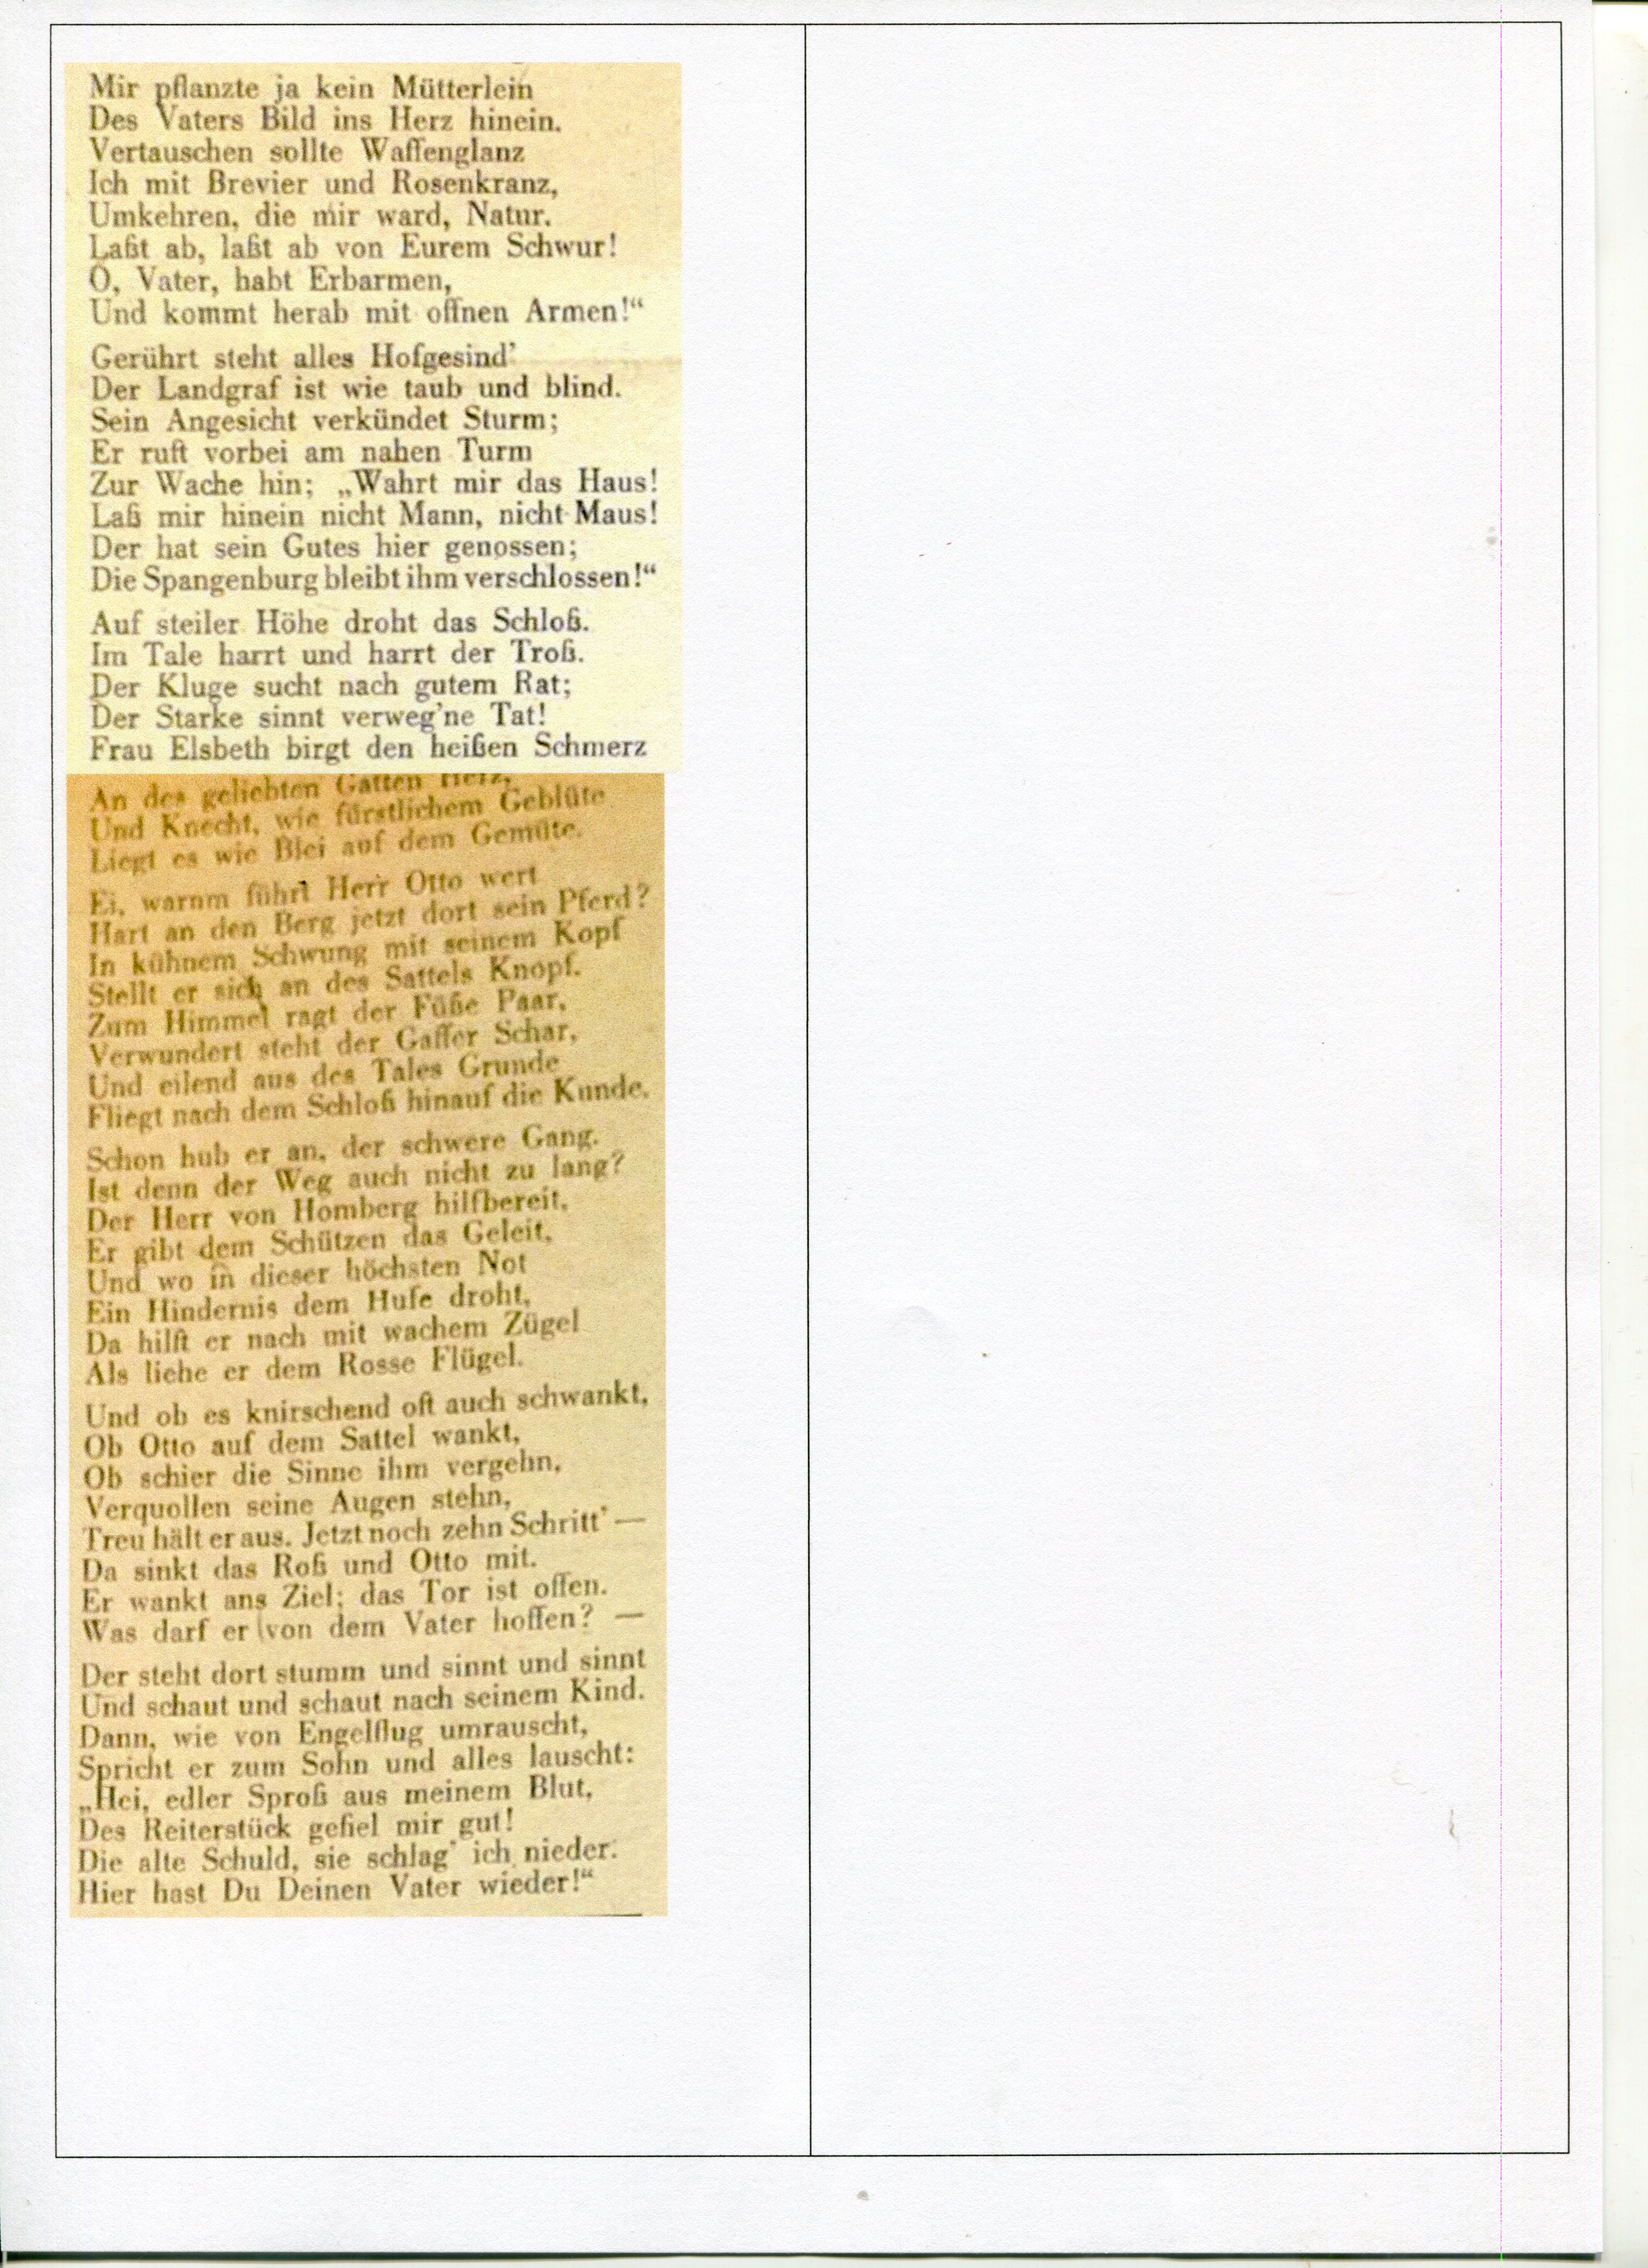 Mir pflanzte ja kein Mütterlein
Des Vaters Bild ins Herz hinein.
Vertauschen sollte Waffenglanz
Ich mit Brevier und Rosenkranz,
Umkehren, die mir ward, Natur.
Laßt ab, laßt ab von Eurem Schwur!
O, Vater, habt Erbarmen,
Und kommt herab mit offnen Armen!“
Gerührt steht alles Hofgesind’
Der Landgraf ist wie taub und blind.
Sein Angesicht verkündet Sturm;
Er ruft vorbei am nahen Turm
Zur Wache hin; „Wahrt mir das Haus!
Laß mir hinein nicht Mann, nicht Maus!
Der hat sein Gutes hier genossen;
Die Spangenburg bleibt ihm verschlossen!“
Auf steiler Höhe droht das Schloß.
Im Tale harrt und harrt der Troß.
Der Kluge sucht nach gutem Rat;
Der Starke sinnt verweg’ne Tat!
Frau Elsbeth birgt den heißen Schmerz
An des geliebten Gatten Herz,
Und Knecht, wie fürstlichem Geblüte
Liegt es wie Blei auf dem Gemüte.
Ei, warum führt Herr Otto wert
Hart an den Berg jetzt dort sein Pferd?
In kühnem Schwung mit seinem Kopf
Stellt er sich an des Sattels Knopf.
Zum Himmel ragt der Füße Paar,
Verwundert steht der Gaffer Schar,
Und eilend aus des Tales Grunde
Fliegt nach dem Schloß hinauf die Kunde.
Schon hub er an, der schwere Gang.
Ist denn der Weg auch nicht zu lang?
Der Herr von Homberg hilfbereit,
Er gibt dem Schützen das Geleit,
Und wo in dieser höchsten Not
Ein Hindernis dem Hufe droht,
Da hilft er nach mit wachem Zügel
Als liehe er dem Rosse Flügel.
Und ob es knirschend oft auch schwankt,
Ob Otto auf dem Sattel wankt,
Ob schier die Sinne ihm vergehn,
Verquollen seine Augen stehn,
Treu hält er aus. Jetzt noch zehn Schritt’ —
Da sinkt das Roß und Otto mit.
Er wankt ans Ziel; das Tor ist offen.
Was darf er von dem Vater hoffen? —
Der steht dort stumm und sinnt und sinnt
Und schaut und schaut nach seinem Kind.
Dann, wie von Engelflug umrauscht,
Spricht er zum Sohn und alles lauscht:
„Hei, edler Sproß aus meinem Blut,
Des Reiterstück gefiel mir gut!
Die alte Schuld, sie schlag’ ich nieder.
Hier hast Du Deinen Vater wieder!“